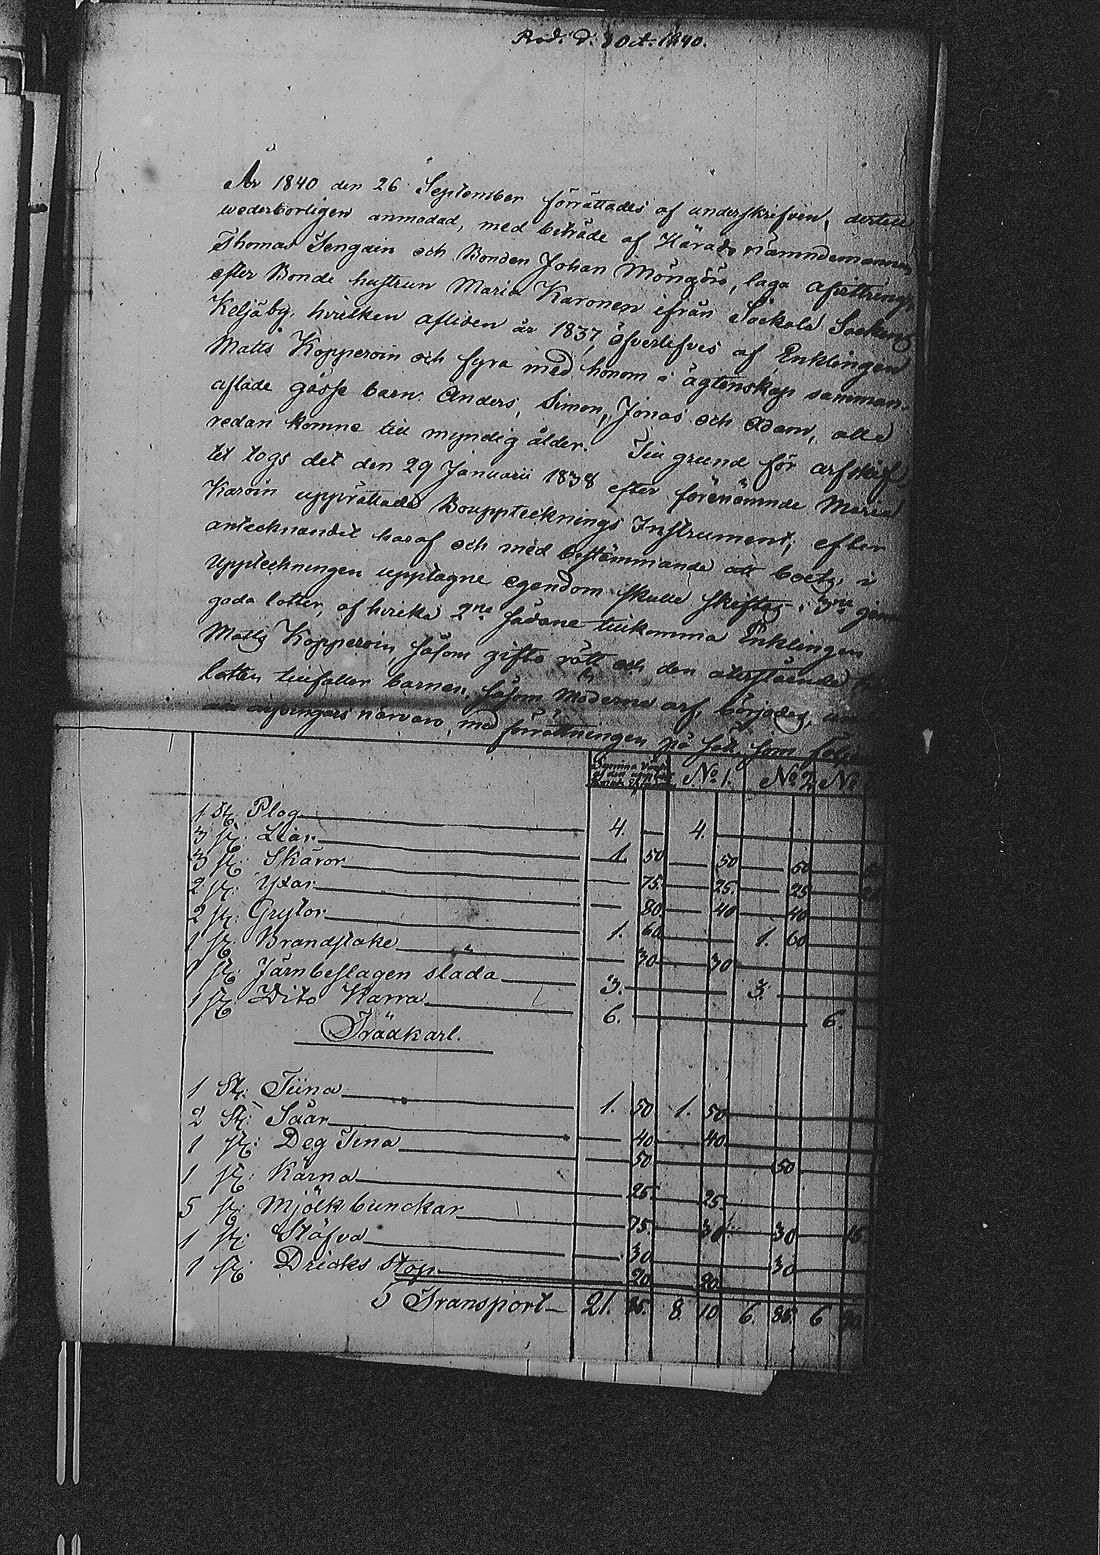 Prod. d. 8 Oct. 1840.
År 1840 den 26 September förrättades af underskrifven, dertill
wederbörligen anmodad, med biträde af Härads Nämndemannen
Thomas Sengäin och Bonden Johan Möngöin, laga afvittring
efter Bonde hustrun Maria Karonen ifrån Säckola Sockens
Keljäby, hvilken afliden år 1837, öfverlefves af Enklingen
Matts Kopperoin och fyra med honom i ägtenskap samman-
aflade gåsse barn: Anders, Simon, Jonas och Adam, alla
redan komne till myndig ålder. Till grund för arfskif-
tet togs det den 29 Januarii 1838 efter förenämnde Maria
Karoin upprättade Bouppteknings Instrument, efter
antecknandet haraf och med bestämmande att boets i
upptechningen upptagne egendom skulle skiftas i 3ne gem
goda lotter, af hvilka 2ne sådane tillkomma Enklingen
Matts Kopperoin såsom gifto rätt och den återstående
lotten tillfaller barnen såsom Möderne arf, börjades, 
arfvingars närvaro, med förrättningen på sätt som följer
Summa Värde
No 1. No 2. No
1 St. Plog 4. 4.
3 St. Liar 1. 50 50 50
3 St. Skäror 75. 25. 25
2 St. Yxar 80. 40 40
2 St. Grytor 1. 60 1. 60
1 St. Brandstake 30 30
1 St. Järnbeslagen slada 3. 3.
1 St. Dito Karra 6. 6.
Trädkärl.
1 St. Tiina 1. 50 1. 50
2 St. Såar 40 40
1 St. Deg Tina 50 50
1 St. Kärna 25. 25.
5 St. Mjölk bunckar 75. 30 30 15
1 St. Stäfva 30 30
1 St. Dricks stop 20 20
Transport 21. 85. 8. 10 6. 85. 6 90